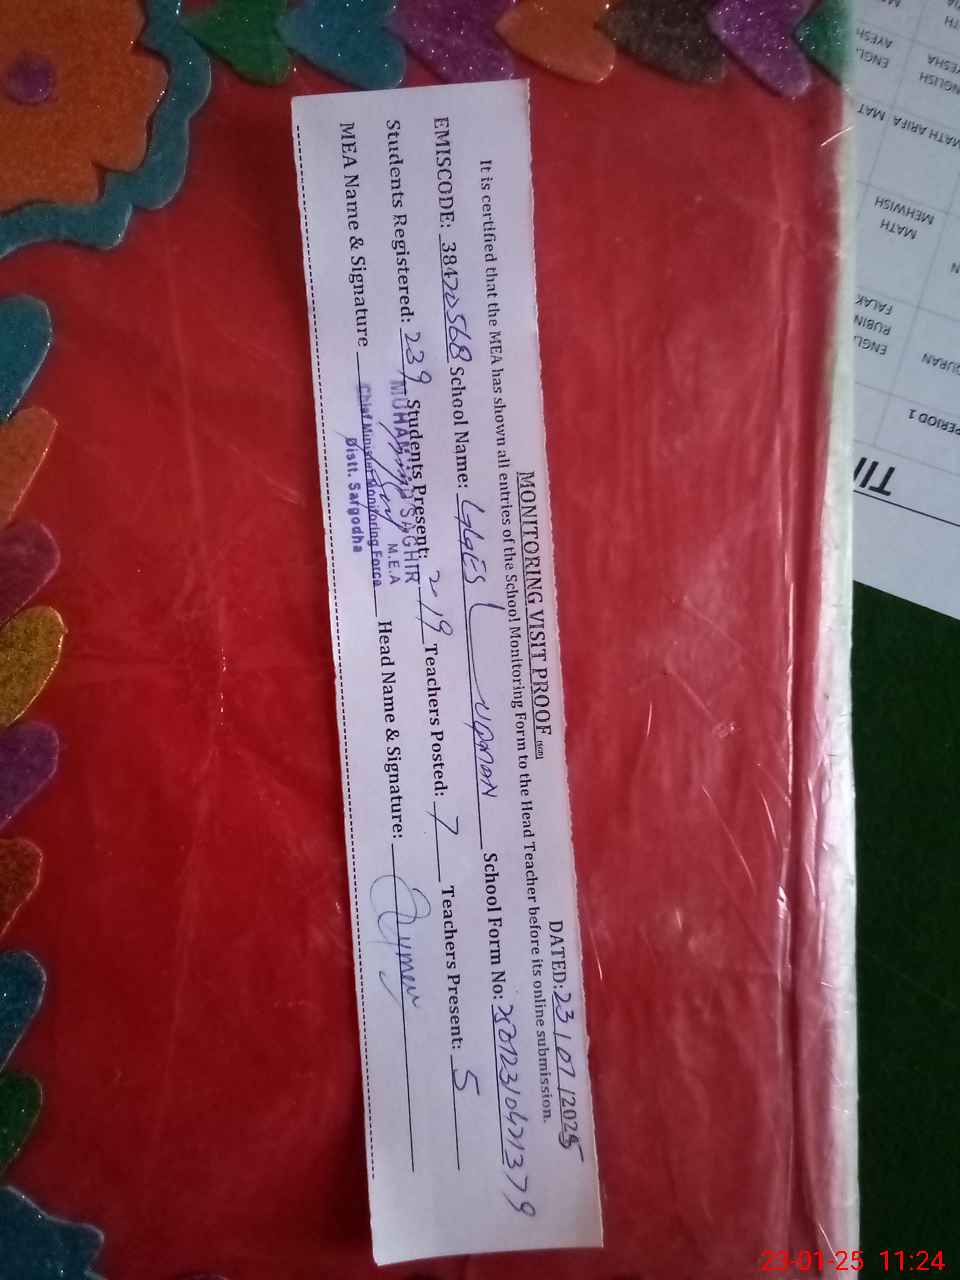 MONITORING VISIT PROOF
DATED: 23/01/2025
It is certified that the MEA has shown all entries of the School Monitoring Form to the Head Teacher before its online submission.
EMISCODE: 38420568 School Name: GGES School Form No:
Students Registered: 239 Students Present: 219 Teachers Posted: 7 Teachers Present: 5
MEA Name & Signature Head Name & Signature:
MUHAMMAD SAGHIR
M.E.A
Chief Minister Monitoring Force
Distt. Sargodha
PERIOD 1
QURAN
ENGL.
RUBIN
FALAK
MATH
MEHWISH
MATH ARIFA
MAT
ENGLISH
AYESHA
ENGL.
AYESH
23-01-25 11:24